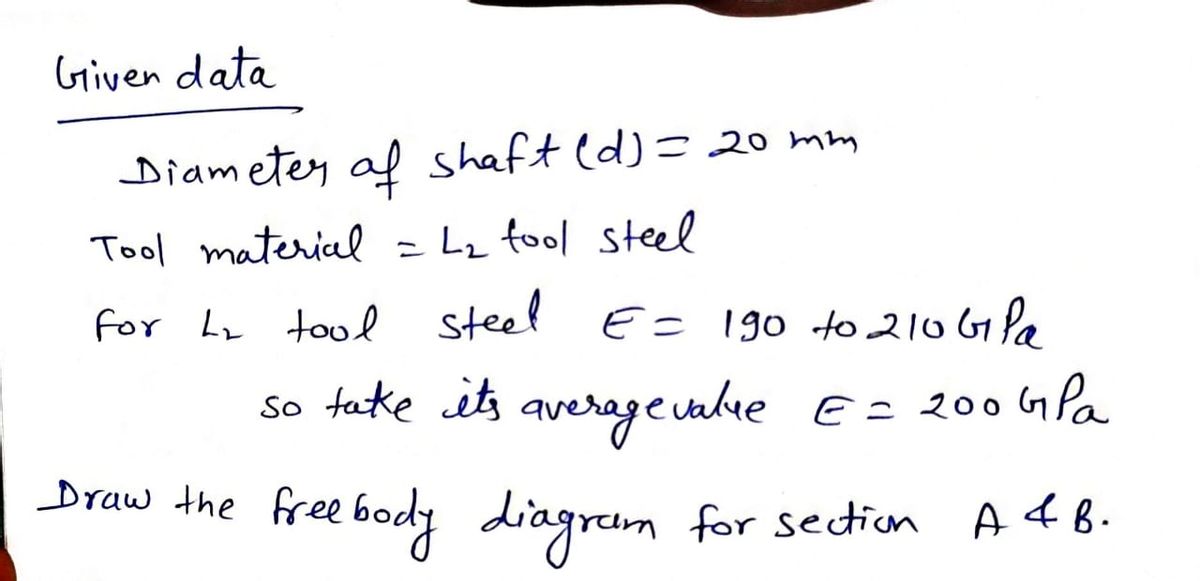 Given data
Diameter of shaft (d) = 20 mm
Tool material = L2 tool steel
for L2 tool steel E = 190 to 210 GPa
so take its average value E = 200 GPa
Draw the free body diagram for section A & B.